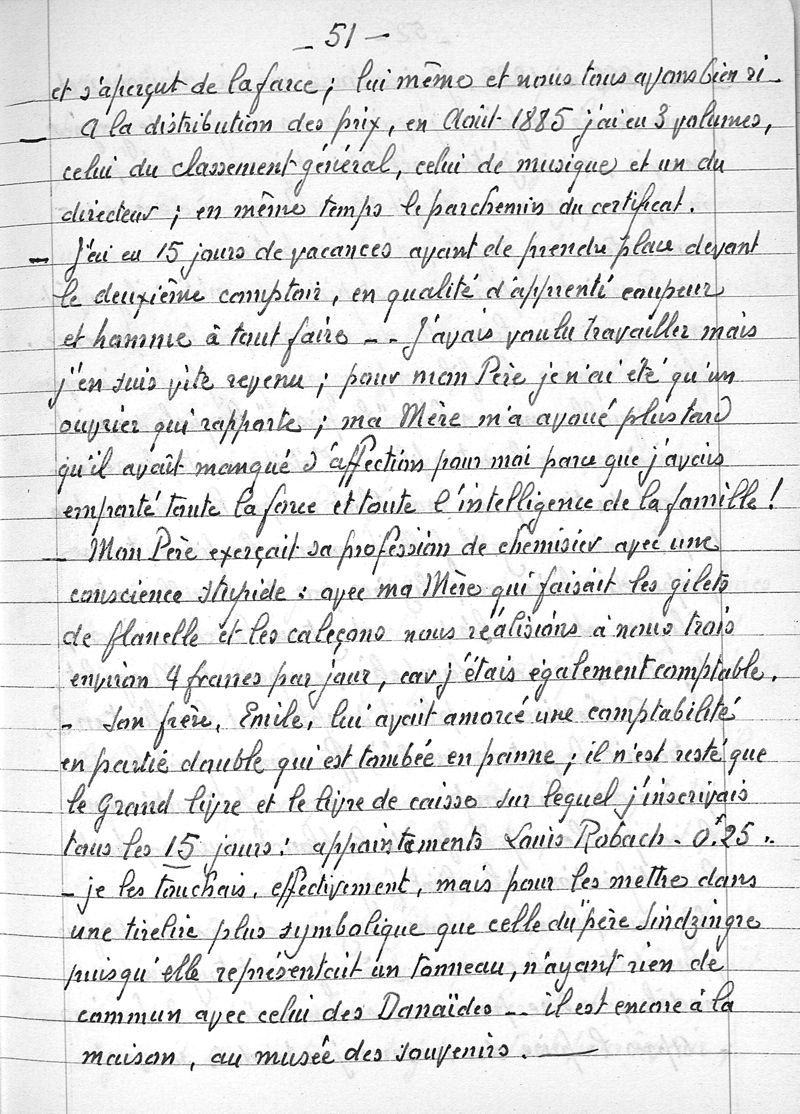 - 51 -
et s'aperçut de la farce ; lui même et nous tous avons bien ri
— A la distribution des prix, en Août 1885 j'ai eu 3 volumes,
celui du classement général, celui de musique et un du
directeur ; en même temps le parchemin du certificat.
— J'ai eu 15 jours de vacances avant de prendre place devant
le deuxième comptoir, en qualité d'apprenti coupeur
et homme à tout faire -- J'avais voulu travailler mais
j'en suis vite revenu ; pour mon Père je n'ai été qu'un
ouvrier qui rapporte ; ma Mère m'a avoué plus tard
qu'il avait manqué d'affection pour moi parce que j'avais
emporté toute la force et toute l'intelligence de la famille !
— Mon Père exerçait sa profession de chemisier avec une
conscience stupide : avec ma Mère qui faisait les gilets
de flanelle et les caleçons nous réalisions à nous trois
environ 4 francs par jour, car j'étais également comptable.
- Son frère, Emile, lui avait amorcé une comptabilité
en partie double qui est tombée en panne ; il n'est resté que
le Grand livre et le livre de caisse sur lequel j'inscrivais
tous les 15 jours : appointements Louis Robach - 0f.25 ..
- je les touchais, effectivement, mais pour les mettre dans
une tirelire plus symbolique que celle du "père Sindzingre
puisqu'elle représentait un tonneau, n'ayant rien de
commun avec celui des Danaïdes -- il est encore à la
maison, au musée des souvenirs. —